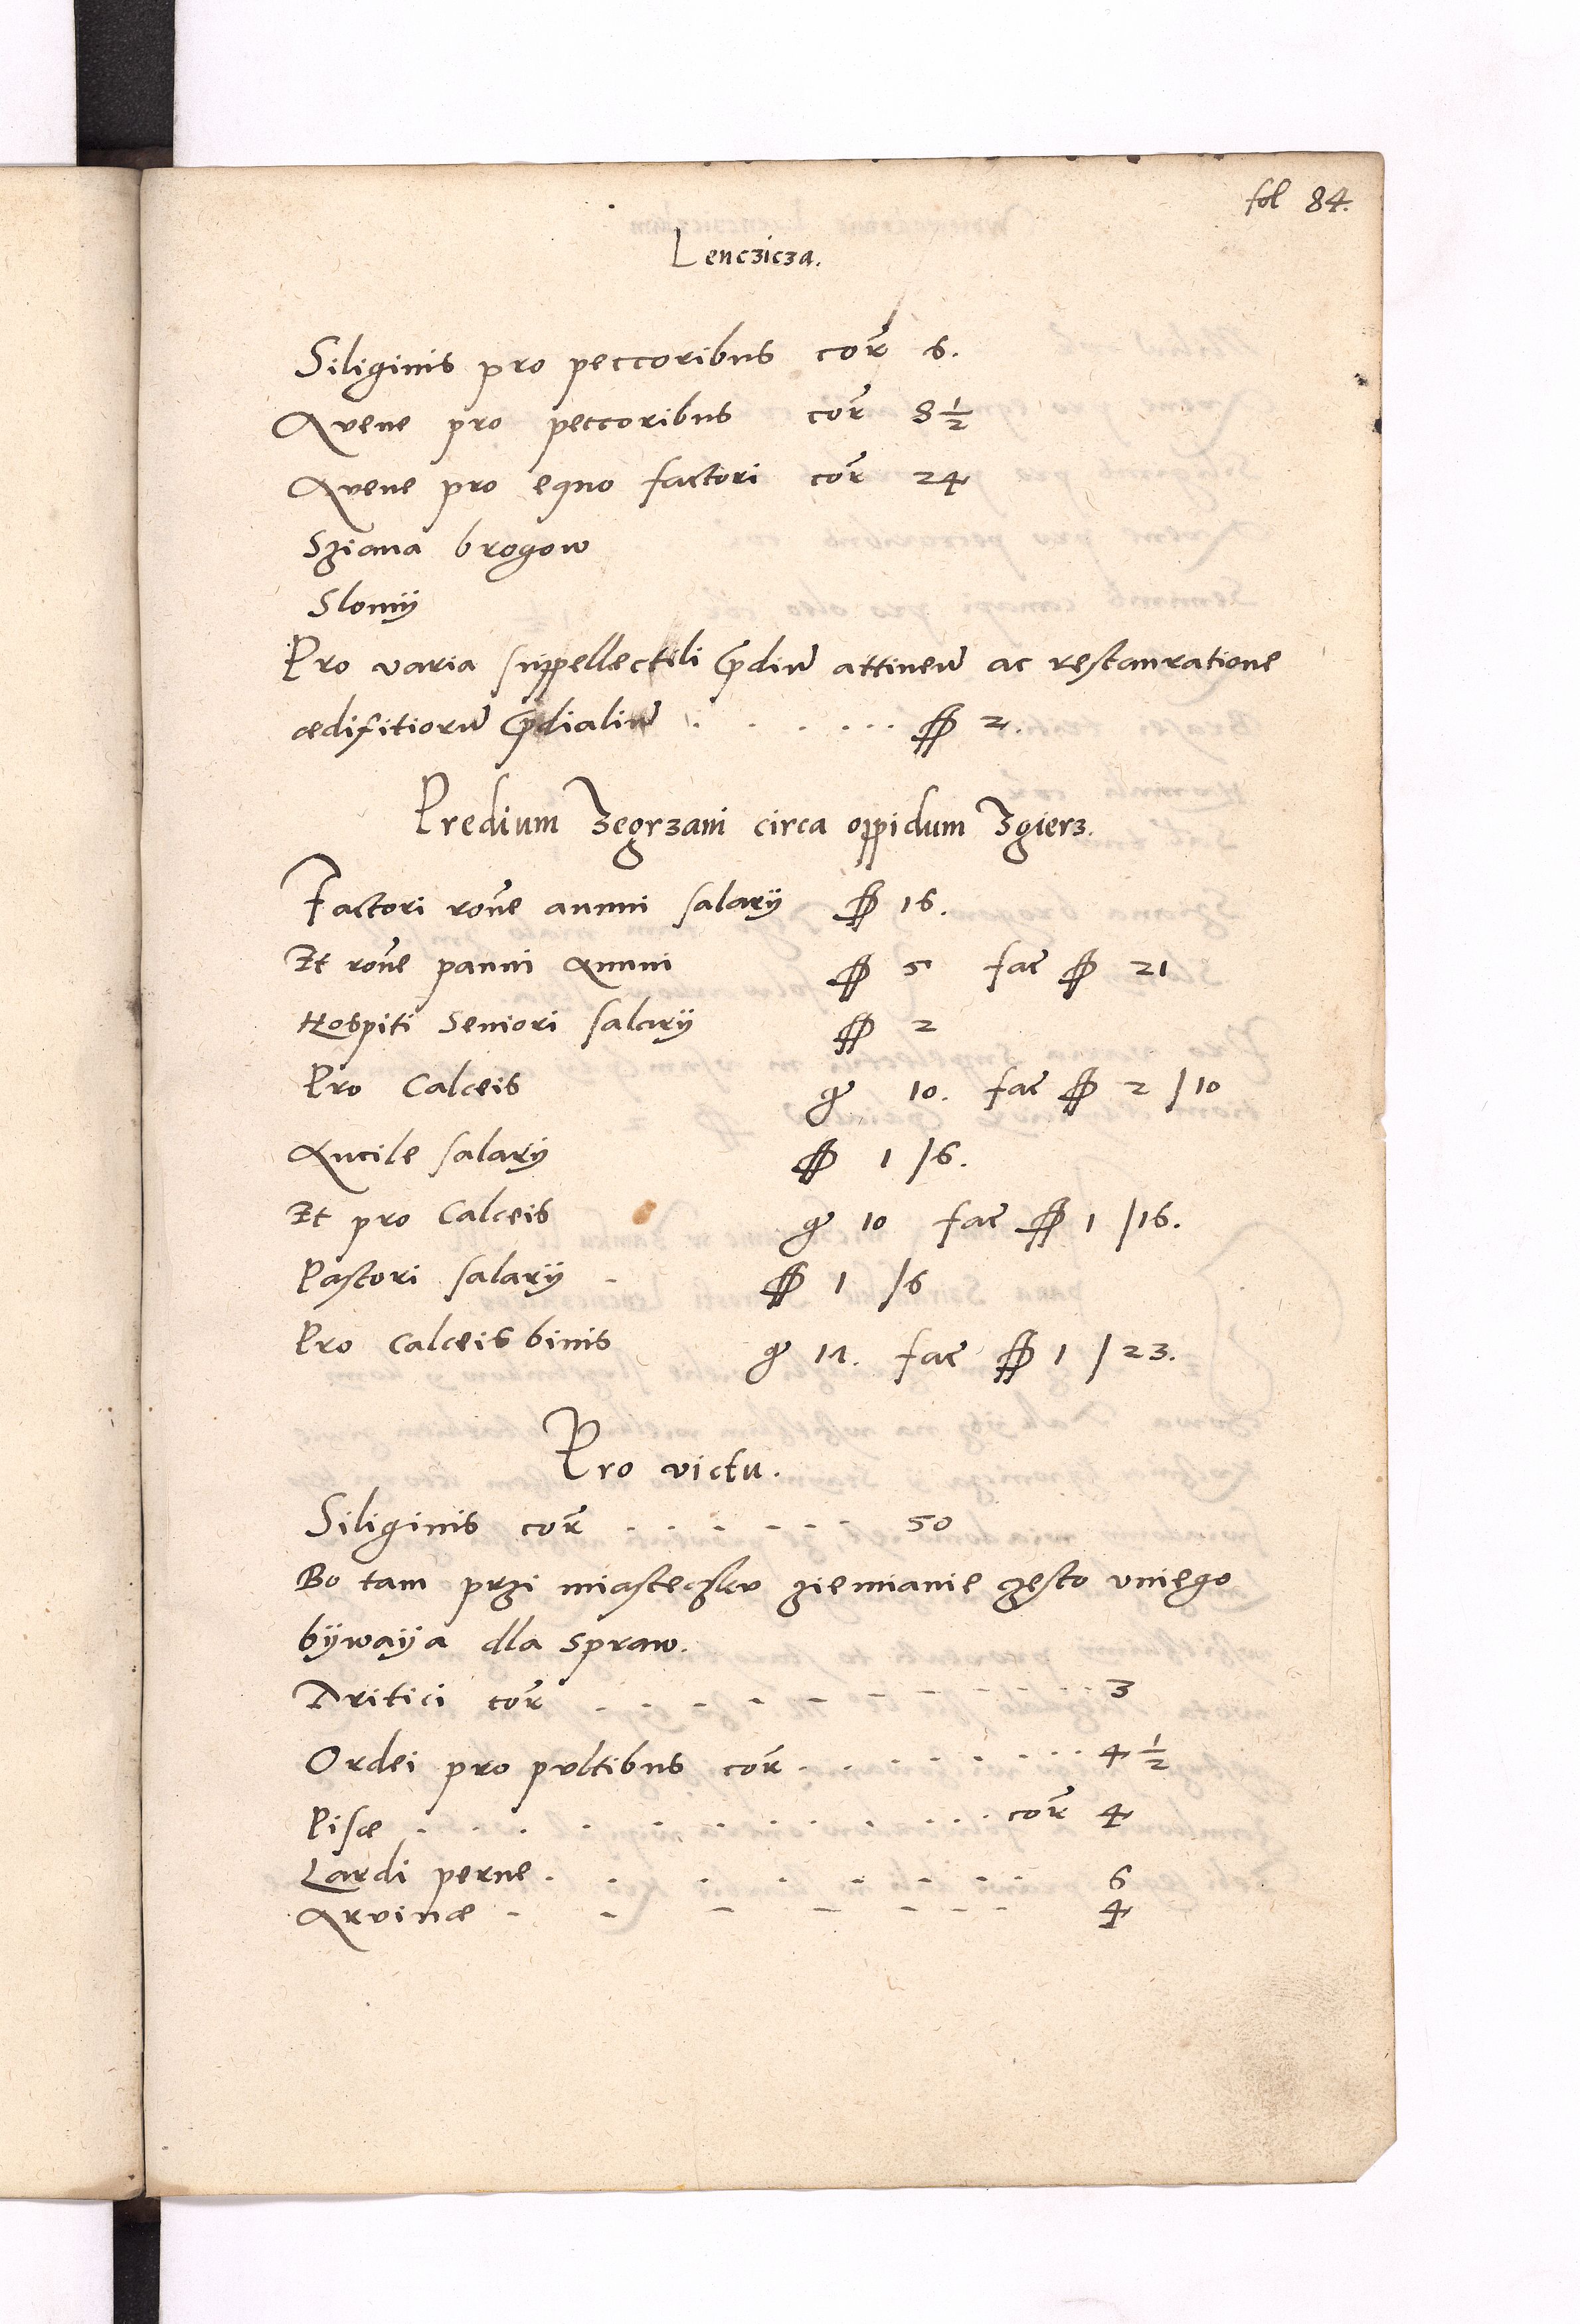 fol 84.
Lenczicza.
Siliginis pro peccoribus cor̃ 6.
Avene pro peccoribus cor̃ 8 1/2
Avene pro equo factori cor̃ 24
Sziana brogow
Slomÿ
Pro varia suppellectili p̃diũ attineñ ac restauratione
ædifitiorũ p̃dialiũ . . . . . . fl 2.
Predium Zegrzani circa oppidum Zgierz.
Factori rõne annui salarÿ fl 16.
Et rõne panni Annui fl 5 fac̃ fl 21
Hospiti Seniori salarÿ fl 2
Pro Calceis gr 10. fac̃ fl 2 / 10
Ancile salarÿ fl 1 / 6.
Et pro Calceis gr 10 fac̃ fl 1 / 16.
Pastori salarÿ - fl 1 / 6
Pro Calceis binis gr 17. fac̃ fl 1 / 23.
Pro victu.
Siliginis cor̃ . . . . . . 50
Bo tam przi miasteczku ziemianie często vniego
bÿwaÿa dla spraw.
Tritici cor̃ . . . . . . . . . 3
Ordei pro pultibus cor̃ . . . . . . . 4 1/2
Pisæ . . . . . . . . . . cor̃ 4
Lardi perne . . . . . . . . 6
Arvinæ . . . . . . . 4